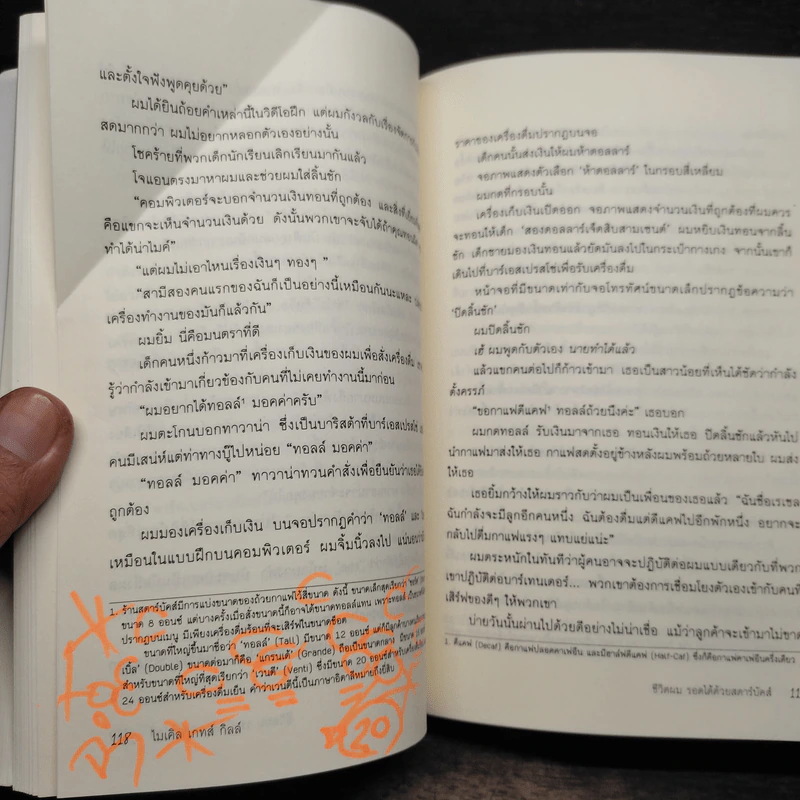 และตั้งใจฟังพูดคุยด้วย”
ผมได้ยินถ้อยคำเหล่านี้ในวิดีโอฝึก แต่ผมกังวลกับเรื่องจัดการ
สดมากกว่า ผมไม่อยากหลอกตัวเองอย่างนั้น
โชคร้ายที่พวกเด็กนักเรียนเลิกเรียนมากันแล้ว
โจแอนตรงมาหาผมและช่วยผมใส่ลิ้นชัก
“คอมพิวเตอร์จะบอกจำนวนเงินทอนที่ถูกต้อง และสิ่งที่
คือแขกจะเห็นจำนวนเงินด้วย ดังนั้นพวกเขาจะจับได้ถ้าคุณทอน
ทำได้น่าไมค์”
“แต่ผมไม่เอาไหนเรื่องเงินๆ ทองๆ ”
“สามีสองคนแรกของฉันก็เป็นอย่างนี้เหมือนกันนะแหละ
เครื่องทำงานของมันก็แล้วกัน”
ผมยิ้ม นี่คือมนตราที่ดี
เด็กคนหนึ่งก้าวมาที่เครื่องเก็บเงินของผมเพื่อสั่งเครื่องดื่ม
รู้ว่ากำลังเข้ามาเกี่ยวข้องกับคนที่ไม่เคยทำงานนี้มาก่อน
“ผมอยากได้ทอลล์¹ มอคค่าครับ”
ผมตะโกนบอกทาวาน่า ซึ่งเป็นบาริสต้าที่บาร์เอสเปรสโซ่
คนมีเสน่ห์แต่ท่าทางบู๊ไปหน่อย “ทอลล์ มอคค่า”
“ทอลล์ มอคค่า” ทาวาน่าทวนคำสั่งเพื่อยืนยันว่าเธอได้
ถูกต้อง
ผมมองเครื่องเก็บเงิน บนจอปรากฏคำว่า ‘ทอลล์’ และ
เหมือนในแบบฝึกบนคอมพิวเตอร์ ผมจิ้มนิ้วลงไป แน่นอน
1. ร้านสตาร์บัคส์มีการแบ่งขนาดของถ้วยกาแฟไว้สี่ขนาด ดังนี้ ขนาดเล็กสุดเรียกว่า
ขนาด 8 ออนซ์ แต่บางครั้งเมื่อสั่งขนาดนี้ก็อาจได้ขนาดทอลล์แทน เพราะทอลล์
ปรากฏบนเมนู มีเพียงเครื่องดื่มร้อนที่จะเสิร์ฟในขนาดช็อต
ขนาดที่ใหญ่ขึ้นมาชื่อว่า ‘ทอลล์’ (Tall) มีขนาด 12 ออนซ์ แต่ก็มีลูกค้า
เบิ้ล’ (Double) ขนาดต่อมาก็คือ ‘แกรนเด้’ (Grande) ถือเป็นขนาดกลาง มีขนาด
สำหรับขนาดที่ใหญ่ที่สุดเรียกว่า ‘เวนตี’ (Venti) ซึ่งมีขนาด 20 ออนซ์สำหรับเครื่องดื่ม
24 ออนซ์สำหรับเครื่องดื่มเย็น คำว่าเวนตีนี้เป็นภาษาอิตาลีหมายถึงยี่สิบ
20
จำ
118 ไมเคิล เกทส์ กิลล์
ราคาของเครื่องดื่มปรากฏบนจอ
เด็กคนนั้นส่งเงินให้ผมห้าดอลลาร์
จอภาพแสดงตัวเลือก ‘ห้าดอลลาร์’ ในกรอบสี่เหลี่ยม
ผมกดที่กรอบนั้น
เครื่องเก็บเงินเปิดออก จอภาพแสดงจำนวนเงินที่ถูกต้องที่ผมควร
จะทอนให้เด็ก ‘สองดอลลาร์เจ็ดสิบสามเซนต์’ ผมหยิบเงินทอนจากลิ้น
ชัก เด็กชายมองเงินทอนแล้วยัดมันลงไปในกระเป๋ากางเกง จากนั้นเขาก็
เดินไปที่บาร์เอสเปรสโซ่เพื่อรับเครื่องดื่ม
หน้าจอที่มีขนาดเท่ากับจอโทรทัศน์ขนาดเล็กปรากฏข้อความว่า
‘ปิดลิ้นชัก’
ผมปิดลิ้นชัก
เฮ้ ผมพูดกับตัวเอง นายทำได้แล้ว
แล้วแขกคนต่อไปก็ก้าวเข้ามา เธอเป็นสาวน้อยที่เห็นได้ชัดว่ากำลัง
ตั้งครรภ์
“ขอกาแฟดีแคฟ¹ ทอลล์ถ้วยนึงค่ะ” เธอบอก
ผมกดทอลล์ รับเงินมาจากเธอ ทอนเงินให้เธอ ปิดลิ้นชักแล้วหันไป
นำกาแฟมาส่งให้เธอ กาแฟสดตั้งอยู่ข้างหลังผมพร้อมถ้วยหลายใบ ผมส่ง
ให้เธอ
เธอยิ้มกว้างให้ผมราวกับว่าผมเป็นเพื่อนของเธอแล้ว “ฉันชื่อเรเชล
ฉันกำลังจะมีลูกอีกคนหนึ่ง ฉันต้องดื่มแต่ดีแคฟไปอีกพักหนึ่ง อยากจะ
กลับไปดื่มกาแฟแรงๆ แทบแย่แน่ะ”
ผมตระหนักในทันทีว่าผู้คนอาจจะปฏิบัติต่อผมแบบเดียวกับที่พวก
เขาปฏิบัติต่อบาร์เทนเดอร์... พวกเขาต้องการเชื่อมโยงตัวเองเข้ากับคนที่
เสิร์ฟของดีๆ ให้พวกเขา
บ่ายวันนั้นผ่านไปด้วยดีอย่างไม่น่าเชื่อ แม้ว่าลูกค้าจะเข้ามาไม่ขาด
1. ดีแคฟ (Decaf) คือกาแฟปลอดคาเฟอีน และมีฮาล์ฟดีแคฟ (Half-Caf) ซึ่งก็คือกาแฟคาเฟอีนครึ่งเดียว
ชีวิตผม รอดได้ด้วยสตาร์บัคส์